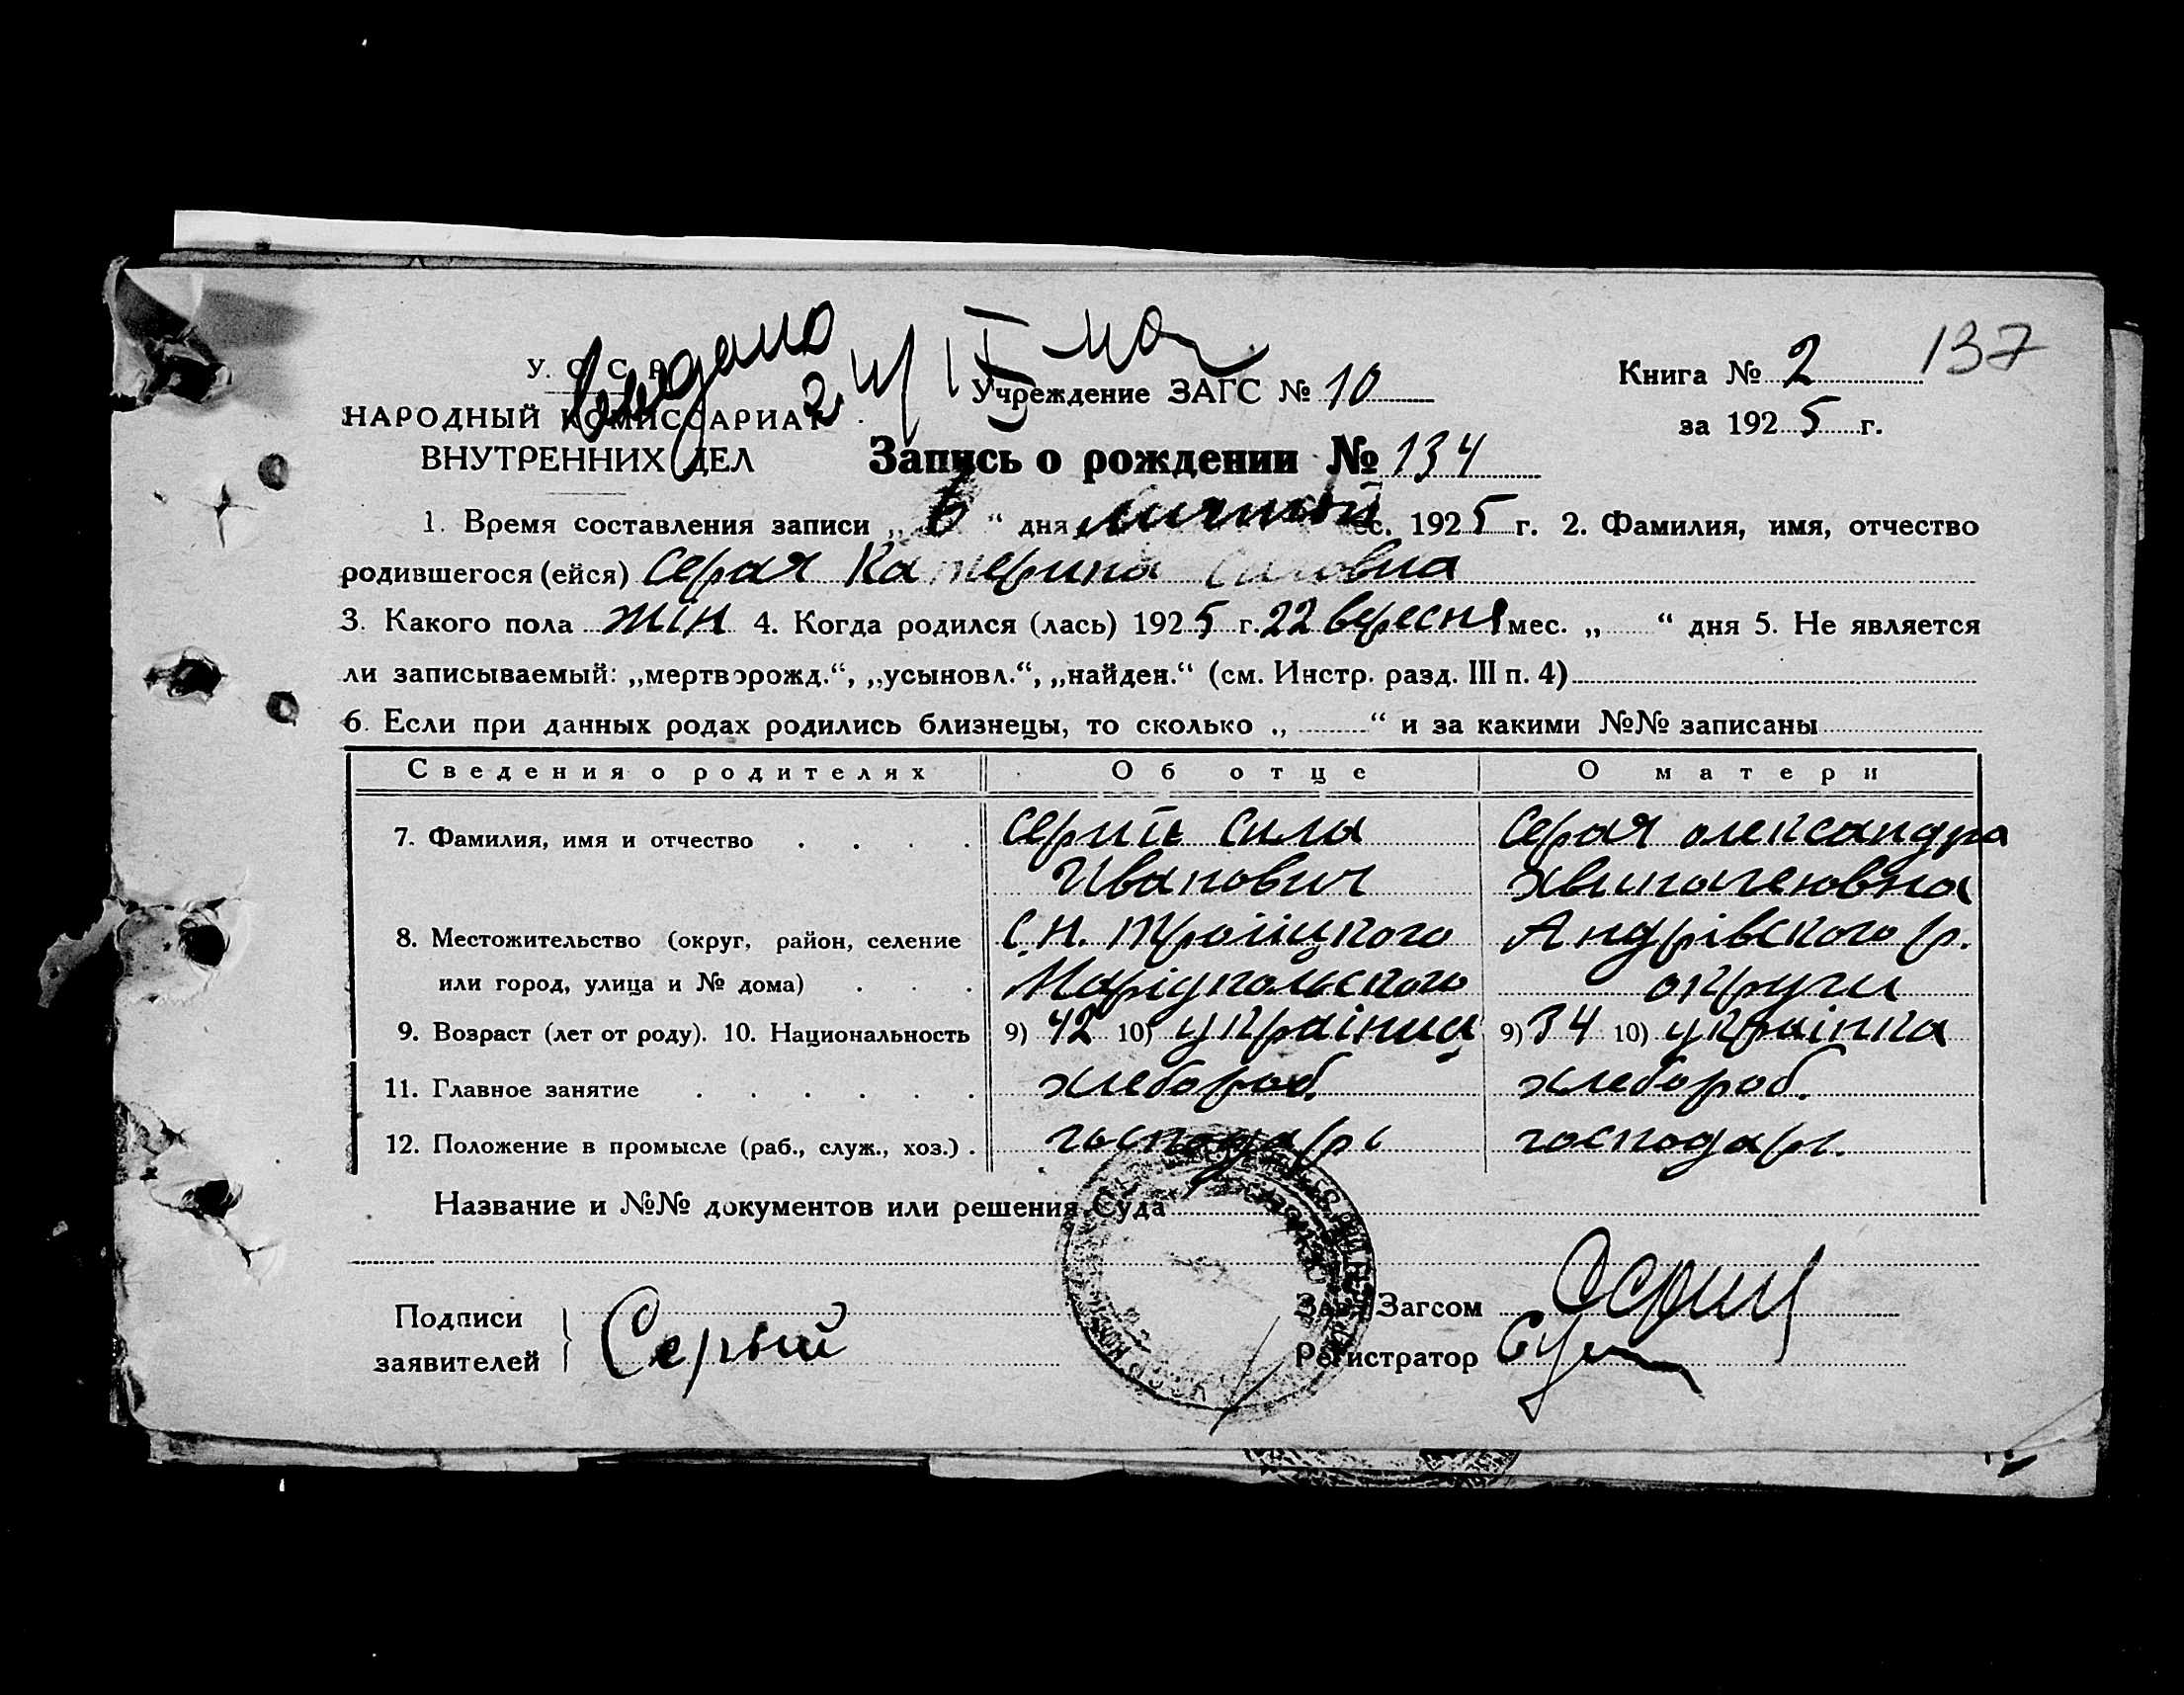 Выдано
137
У. С. С. Р.
Учреждение ЗАГС № 10
Книга № 2
НАРОДНЫЙ КОМИССАРИАТ
за 1925 г.
ВНУТРЕННИХ ДЕЛ
Запись о рождении № 134
1. Время составления записи „ “ дня мес. 1925 г. 2. Фамилия, имя, отчество
родившегося (ейся) Серая Катерина Силовна
3. Какого пола жін 4. Когда родился (лась) 1925 г. 22 вересня мес. „ “ дня 5. Не является
ли записываемый: „мертворожд.“, „усыновл.“, „найден.“ (см. Инстр. разд. III п. 4)
6. Если при данных родах родились близнецы, то сколько „ “ и за какими №№ записаны
Сведения о родителях Об отце О матери
7. Фамилия, имя и отчество Серий Сила Серая олександра
Иванович
8. Местожительство (округ, район, селение С.Н. Троіцкого Андрівского р.
или город, улица и № дома) Маріупольского округи
9. Возраст (лет от роду). 10. Национальность 9) 42 10) украінец 9) 34 10) украінка
11. Главное занятие хлебороб. хлебороб.
12. Положение в промысле (раб., служ., хоз.) господарь господарь.
Название и №№ документов или решения Суда
Подписи
заявителей Серый
Зав. Загсом
Регистратор